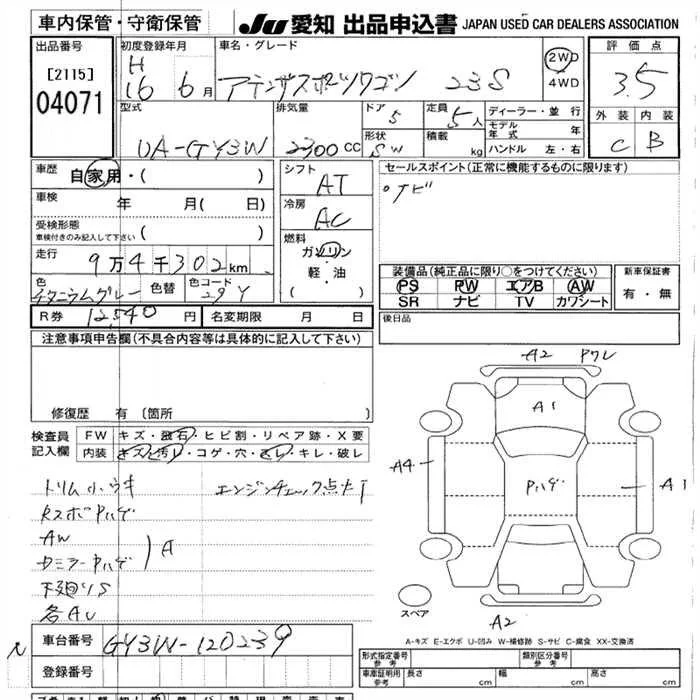 車内保管・守衛保管 JU 愛知 出品申込書 JAPAN USED CAR DEALERS ASSOCIATION
出品番号
[2115]
04071
初度登録年月
H
16 6月
車名・グレード
アテンザスポーツワゴン 23S
2WD
4WD
評価点
3.5
外装 内装
C B
型式
UA-GY3W
排気量
2300cc
ドア
5
形状
SW
定員
5人
積載
kg
ディーラー・並行
モデル年式 年
ハンドル 左・右
車歴 自家用・( )
車検 年 月( 日)
受検形態
車検付きのみ記入して下さい ( )
走行 9万4千302km
色
チタニウムグレー
色替
色コード
29Y
シフト
AT
冷房
AC
燃料
ガソリン
軽・油
( )
セールスポイント(正常に機能するものに限ります)
°ナビ
装備品(純正品に限り○をつけてください)
PS PW エアB AW
SR ナビ TV カワシート
新車保証書
有・無
R券 12,540 円 名変期限 月 日
後日品
注意事項申告欄(不具合内容等は具体的に記入して下さい)
修復歴 有〔箇所
検査員
記入欄
FW キズ・飛石・ヒビ割・リペア跡・X要
内装 キズ・汚レ・コゲ・穴・スレ・キレ・破レ
トリム小ウキ
エンジンチェック点灯
RスポPハゲ
AW
ドミラーPハゲ
A
下廻りS
各AU
A2 Pワレ
A1
A4
Pハゲ
A1
スペア
A2
A-キズ E-エクボ U-凹み W-補修跡 S-サビ C-腐食 XX-交換済
車台番号 GY3W-120239
登録番号
形式指定番号
参考
類別区分番号
参考
車庫証明用
参考
長さ cm 幅 cm 高さ cm